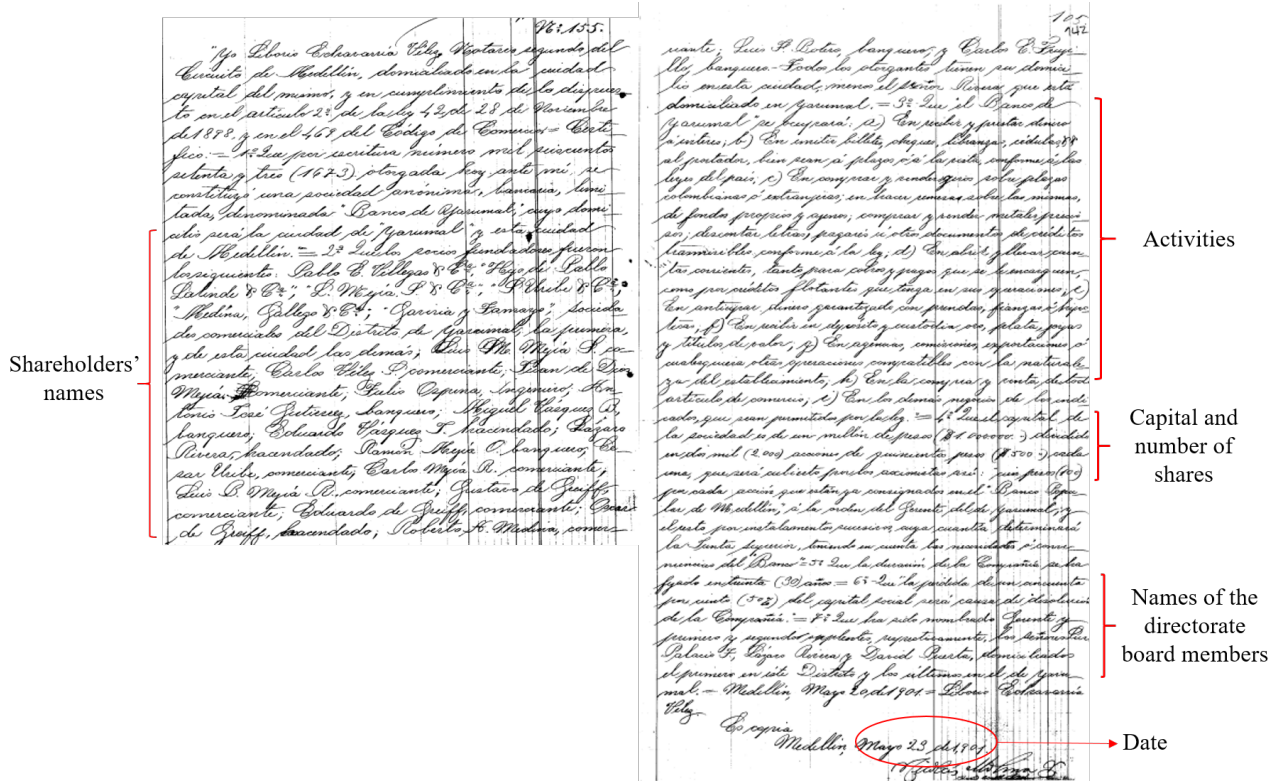 Nº 155.
"Yo Liborio Echavarría Vélez Notario segundo del
Circuito de Medellín, domiciliado en la ciudad
capital del mismo, y en cumplimiento de lo dispues-
to en el artículo 2º de la ley 42, de 28 de Noviembre
de 1898, y en el 469 del Código de Comercio = Certi-
fico: = 1º Que por escritura número mil seiscientos
setenta y tres (1673) otorgada hoy ante mí, se
constituyó una sociedad anónima, bancaria, limi-
tada, denominada "Banco de Yarumal," cuyo domi-
cilio será la ciudad de Yarumal y esta ciudad
de Medellín. = 2º Que los socios fundadores fueron
los siguientes: Pablo E. Villegas & Cª, "Hijo de Pablo
Lalinde & Cª", "L. Mejía S. & Cª", "J. Uribe & Cª,
"Medina, Gallego & Cª; "Gaviria y Tamayo," socieda
des comerciales del Distrito de Yarumal, la primera,
y de esta ciudad las demás; Luis M. Mejía S. co-
merciante; Carlos Vélez S. comerciante; Juan de Dios
Mejía, comerciante; Julio Ospina, Ingeniero; An-
tonio José Gutiérrez, banquero; Miguel Vásquez B,
banquero; Eduardo Vásquez J. hacendado; Lázaro
Rivera, hacendado; Ramón Mejía O. banquero; Cé-
sar Uribe, comerciante; Carlos Mejía R. comerciante;
Luis B. Mejía R. comerciante; Gustavo de Greiff,
comerciante; Eduardo de Greiff, comerciante; Oscar
de Greiff, hacendado; Roberto A. Medina, comer-
Shareholders'
names
105
942
ciante; Luis A. Botero, banquero, y Carlos E. Truji-
llo, banquero. - Todos los otorgantes tienen su domici-
lio en esta ciudad, menos el señor Rivera que está
domiciliado en Yarumal. = 3º Que el Banco de
Yarumal "se ocupará: a) En recibir y prestar dinero
á interes; b) En emitir billetes, cheques, libranzas, cédulas &&
al portador, bien sean á plazos ó á la vista conforme á las
leyes del país; c) En comprar y vender giros sobre plazas
colombianas ó extranjeras; en hacer remesas sobre las mismas,
de fondos propios y ajenos; comprar y vender metales precio-
sos; descontar letras, pagarés ú otros documentos de créditos
transmisibles conforme á la ley; d) En abrir y llevar cuen-
tas corrientes, tanto para cobros y pagos que se le encarguen,
como por créditos flotantes que tenga en sus operaciones; e)
En anticipar dinero garantizado con prendas, fianzas é hipo-
tecas; f) En recibir en depósito y custodia oro, plata, joyas
y títulos de valor; g) En agencias, comisiones, exportaciones ó
cualesquiera otras operaciones compatibles con la naturale-
za del establecimiento; h) En la compra y venta de todo
artículo de comercio; i) En los demás negocios de los indi-
cados, que sean permitidos por la ley. = 4º Que el capital de
la sociedad es de un millón de pesos ($1.000000.-) dividido
en dos mil (2.000) acciones de quinientos pesos ($500-) cada
una, que será cubierto por los accionistas así: pesos (100)
por cada acción que están ya consignados en el "Banco Popu-
lar de Medellín," á la orden del Gerente del de Yarumal; y
el resto por instalamentos sucesivos, cuya cuantía determinará
la Junta superior, teniendo en cuenta las necesidades ó conve-
niencias del "Banco" = 5º Que la duración de la Compañía se ha
fijado en treinta (30) años = 6º Que la pérdida de un cincuenta
por ciento (50%) del capital social será causa de disolución
de la Compañía. = 7º Que ha sido nombrado Gerente y
primero y segundo suplentes, respectivamente, los señores Luis
Palacio F, Lázaro Rivera y David Puerta, domiciliados
el primero en este Distrito y los últimos en el de Yaru-
mal. - Medellín, Mayo 20, de 1901. = Liborio Echavarría
Vélez
Es copia
Medellín, Mayo 23 de 1901.
Molina
Activities
Capital and
number of
shares
Names of the
directorate
board members
Date